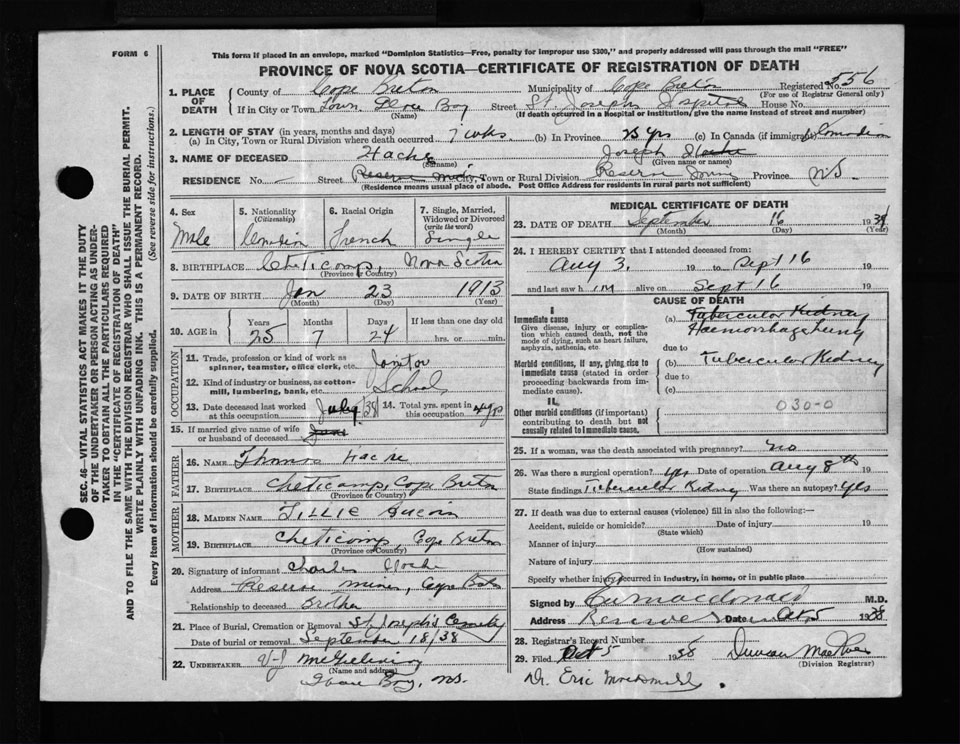 FORM 6
This form if placed in an envelope, marked "Dominion Statistics—Free, penalty for improper use $300," and properly addressed will pass through the mail "FREE"
PROVINCE OF NOVA SCOTIA—CERTIFICATE OF REGISTRATION OF DEATH
SEC. 46—VITAL STATISTICS ACT MAKES IT THE DUTY
OF THE UNDERTAKER OR PERSON ACTING AS UNDER-
TAKER TO OBTAIN ALL THE PARTICULARS REQUIRED
IN THE "CERTIFICATE OF REGISTRATION OF DEATH"
AND TO FILE THE SAME WITH THE DIVISION REGISTRAR WHO SHALL ISSUE THE BURIAL PERMIT.
WRITE PLAINLY WITH UNFADING INK. THIS IS A PERMANENT RECORD.
Every item of information should be carefully supplied. (See reverse side for instructions.)
1. PLACE OF DEATH
County of Cape Breton Municipality of Cape Breton Registered No. 556
(For use of Registrar General only)
If in City or Town Town Glace Bay Street St Josephs Hospital House No.
(Name) (If death occurred in a Hospital or institution, give the name instead of street and number)
2. LENGTH OF STAY (in years, months and days)
(a) In City, Town or Rural Division where death occurred 7 wks. (b) In Province 25 yrs (c) In Canada (if immigrant) Canadian
3. NAME OF DECEASED Hache Joseph Hache
(Surname) (Given name or names)
RESIDENCE No. Street Reserve Mines City, Town or Rural Division Reserve Mines Province N.S.
(Residence means usual place of abode. Post Office Address for residents in rural parts not sufficient)
4. Sex Male
5. Nationality (Citizenship) Canadian
6. Racial Origin French
7. Single, Married, Widowed or Divorced (write the word) Single
8. BIRTHPLACE Cheticamp, Nova Scotia
(Province or Country)
9. DATE OF BIRTH Jan 23 1913
(Month) (Day) (Year)
10. AGE in Years Months Days If less than one day old
25 7 24 hrs. or min.
OCCUPATION
11. Trade, profession or kind of work as spinner, teamster, office clerk, etc. Janitor
12. Kind of industry or business, as cotton-mill, lumbering, bank, etc. School
13. Date deceased last worked at this occupation July/38 14. Total yrs. spent in this occupation 4 yrs
15. If married give name of wife or husband of deceased
FATHER
16. NAME Thomas Hache
17. BIRTHPLACE Cheticamp, Cape Breton
(Province or Country)
MOTHER
18. MAIDEN NAME Tillie Aucoin
19. BIRTHPLACE Cheticamp, Cape Breton
(Province or Country)
20. Signature of informant Charles Hache
Address Reserve Mines, Cape Breton
Relationship to deceased Brother
21. Place of Burial, Cremation or Removal St. Joseph's Cemetery
Date of burial or removal September 18/38
22. UNDERTAKER
(Name and address)
Glace Bay, N.S.
MEDICAL CERTIFICATE OF DEATH
23. DATE OF DEATH September 16 1938
(Month) (Day) (Year)
24. I HEREBY CERTIFY that I attended deceased from:
Aug 3. 19 to Sept 16 19
and last saw him alive on Sept 16 19
CAUSE OF DEATH
I
Immediate cause
Give disease, injury or complication which caused death, not the mode of dying, such as heart failure, asphyxia, asthenia, etc.
(a) Tubercular Kidney
Haemorrhage Lung
due to
Morbid conditions, if any, giving rise to immediate cause (stated in order proceeding backwards from immediate cause).
(b) Tubercular Kidney
due to
(c)
II.
Other morbid conditions (if important) contributing to death but not causally related to immediate cause.
030-0
25. If a woman, was the death associated with pregnancy? no
26. Was there a surgical operation? yes Date of operation Aug 8th 19
State findings Tubercular Kidney Was there an autopsy? yes
27. If death was due to external causes (violence) fill in also the following:—
Accident, suicide or homicide? Date of injury 19
(State which)
Manner of injury
(How sustained)
Nature of injury
Specify whether injury occurred in industry, in home, or in public place
Signed by Macdonald M.D.
Address Reserve Mines Date Oct 5 1938
28. Registrar's Record Number
29. Filed Oct 5 1938 Duncan
(Division Registrar)
Dr. Eric